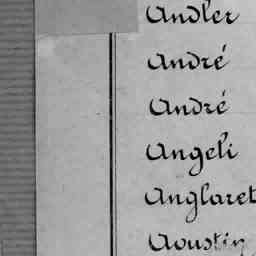 Andler
André
André
Angeli
Anglaret
Aoustin